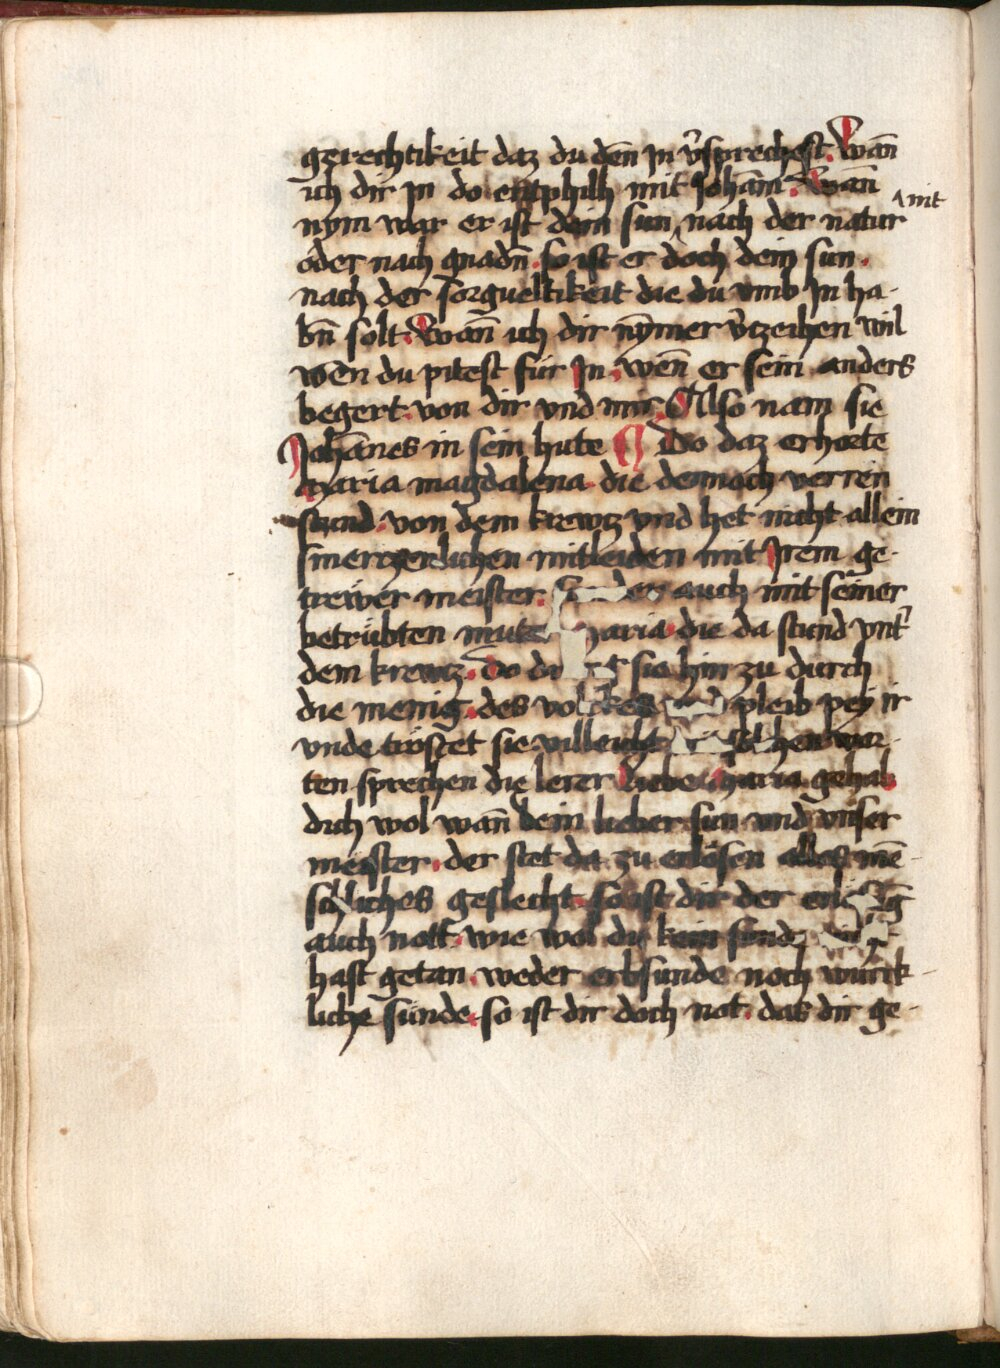 gerechtikeit daz du den̄ in v̓sprechest. Wan̄
ich dir in do entphilh mit Joham̄. Wan̄
nym war er ist dein sun ‸ nach der natur ‸ nit
oder nach gnadn̄. so ist er doch dein sun.
nach der sorgueltikeit die du vmb In ha-
bn̄ solt. Wan̄ ich dir nȳmer v̓tzeihen wil
wen̄ du pitest für In. wen̄ er sein anders
begert von dir vnd mir. Also nam sie
Johānes in sein hute ¶ Do daz erhorte
Maria magdalena. die dennoch verren
stund. von dem krewtz vnd het nicht allein
smertzenlichen mitleiden mit Irem ge-
trewer meister. auch mit seiner
betrübten mute aria. die da stund vnt̓
dem krewtz. do sie hin zu durch
die menig. des volckes pleib pey ir
vnde tröstet sie. villeicht wor-
ten sprechen die lerer Liebe Maria gehab
dich wol wan̄ dein lieber sun vnd vnser
meister. der stet da zu erlösen alles mē-
schliches geslecht. so ist dir der
auch nott. wie wol du kein sund
hast getan. weder erbsunde noch würck-
liche sünde. so ist dir doch not. das dir ge-